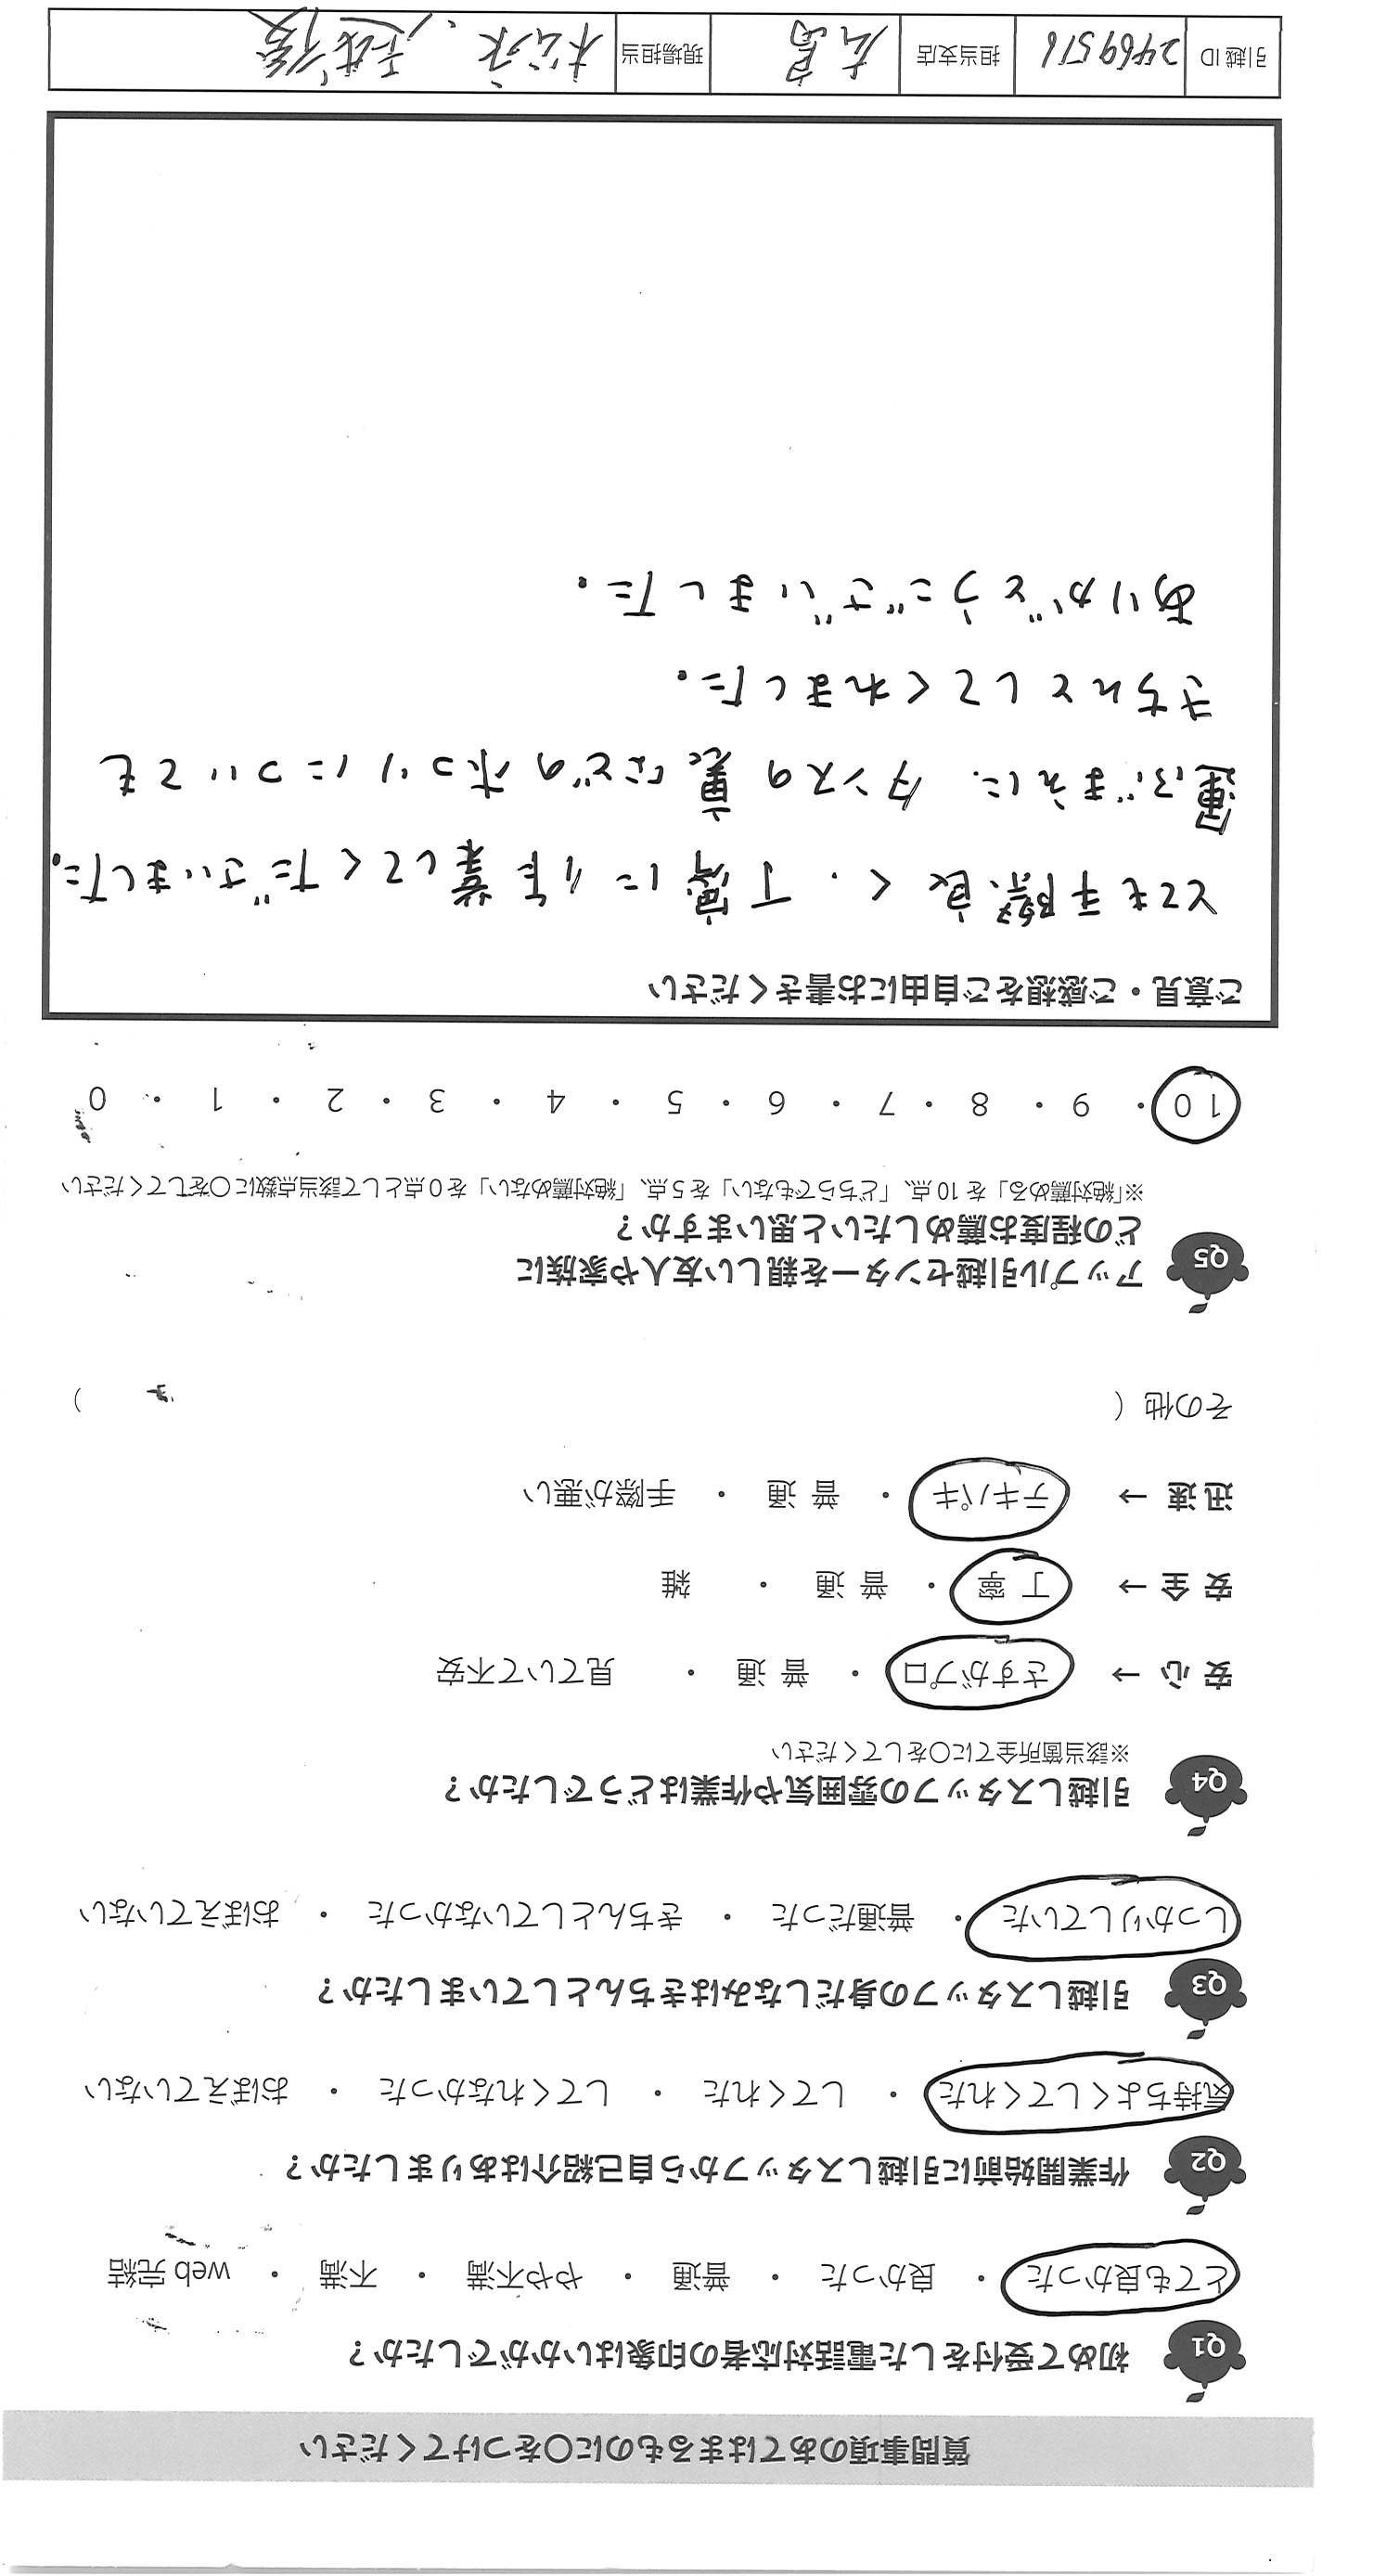 質問事項のあてはまるものに〇をつけてください
Q1 初めて受付をした電話対応者の印象はいかがでしたか？
とても良かった ・ 良かった ・ 普通 ・ やや不満 ・ 不満 ・ web 完結
Q2 作業開始前に引越しスタッフから自己紹介はありましたか？
気持ちよくしてくれた ・ してくれた ・ してくれなかった ・ おぼえていない
Q3 引越しスタッフの身だしなみはきちんとしていましたか？
しっかりしていた ・ 普通だった ・ きちんとしていなかった ・ おぼえていない
Q4 引越しスタッフの雰囲気や作業はどうでしたか？
※該当箇所全てに〇をしてください
安心 → さすがプロ ・ 普通 ・ 見ていて不安
安全 → 丁寧 ・ 普通 ・ 雑
迅速 → テキパキ ・ 普通 ・ 手際が悪い
その他（ ）
Q5 アップル引越センターを親しい友人や家族に
どの程度お薦めしたいと思いますか？
※「絶対薦める」を10点、「どちらでもない」を5点、「絶対薦めない」を0点として該当点数に〇をしてください
10 ・ 9 ・ 8 ・ 7 ・ 6 ・ 5 ・ 4 ・ 3 ・ 2 ・ 1 ・ 0
ご意見・ご感想をご自由にお書きください
とても手際良く、丁寧に作業してくださいました。
運ぶまえに、タンスの裏などのホコリについても
きちんとしてくれました。
ありがとうございました。
引越 ID 2469516 担当支店 広島 現場担当 松永、越後